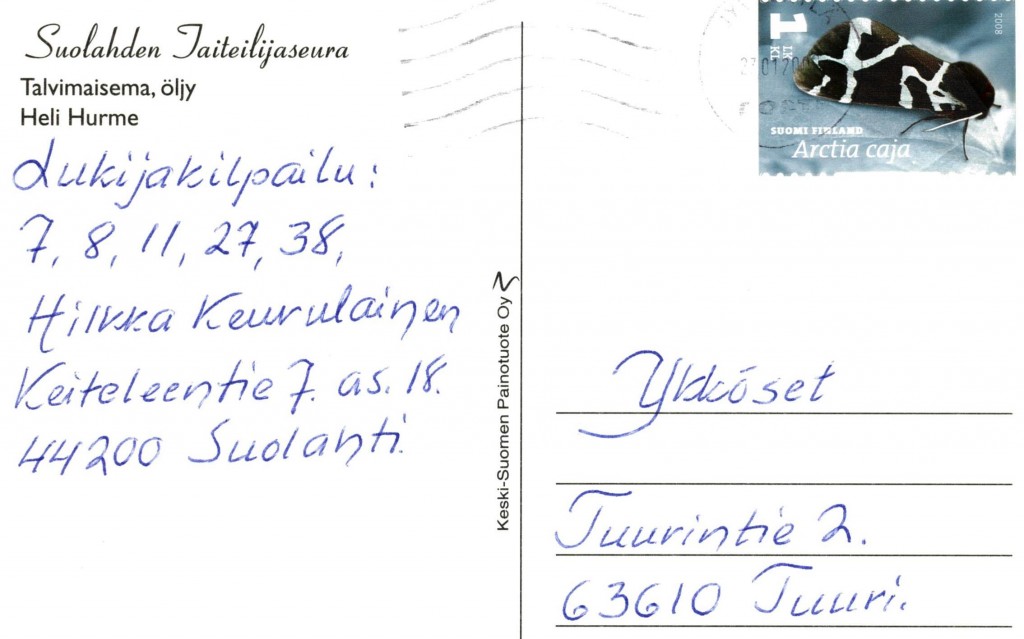 Suolahden Taiteilijaseura
Talvimaisema, öljy
Heli Hurme
Lukijakilpailu:
7, 8, 11, 27, 38,
Hilkka Keurulainen
Keiteleentie 7. as. 18.
44200 Suolahti.
Keski-Suomen Painotuote Oy
1 LK KL
2008
SUOMI FINLAND
Arctia caja
Ykköset
Tuurintie 2.
63610 Tuuri.